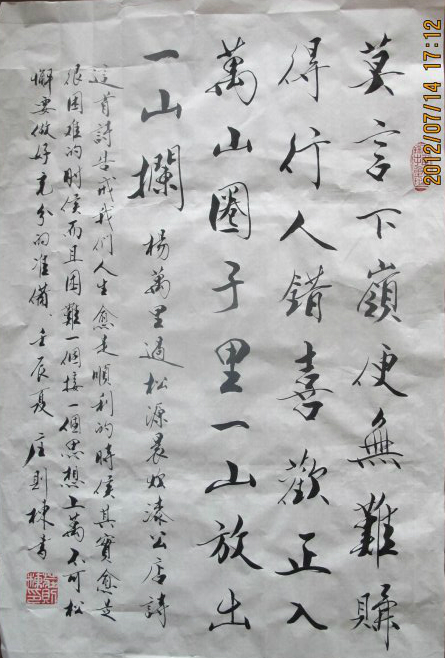 莫言下嶺便無難賺
得行人錯喜歡正入
萬山圈子里一山放出
一山攔 楊萬里過松源晨炊漆公店詩
這首詩告戒我們人生愈是順利的時候其實愈是
很困難的時候而且困難一個接一個思想上萬不可松
懈要做好充分的准備、壬辰夏庄則棟書
2012/07/14 17:12